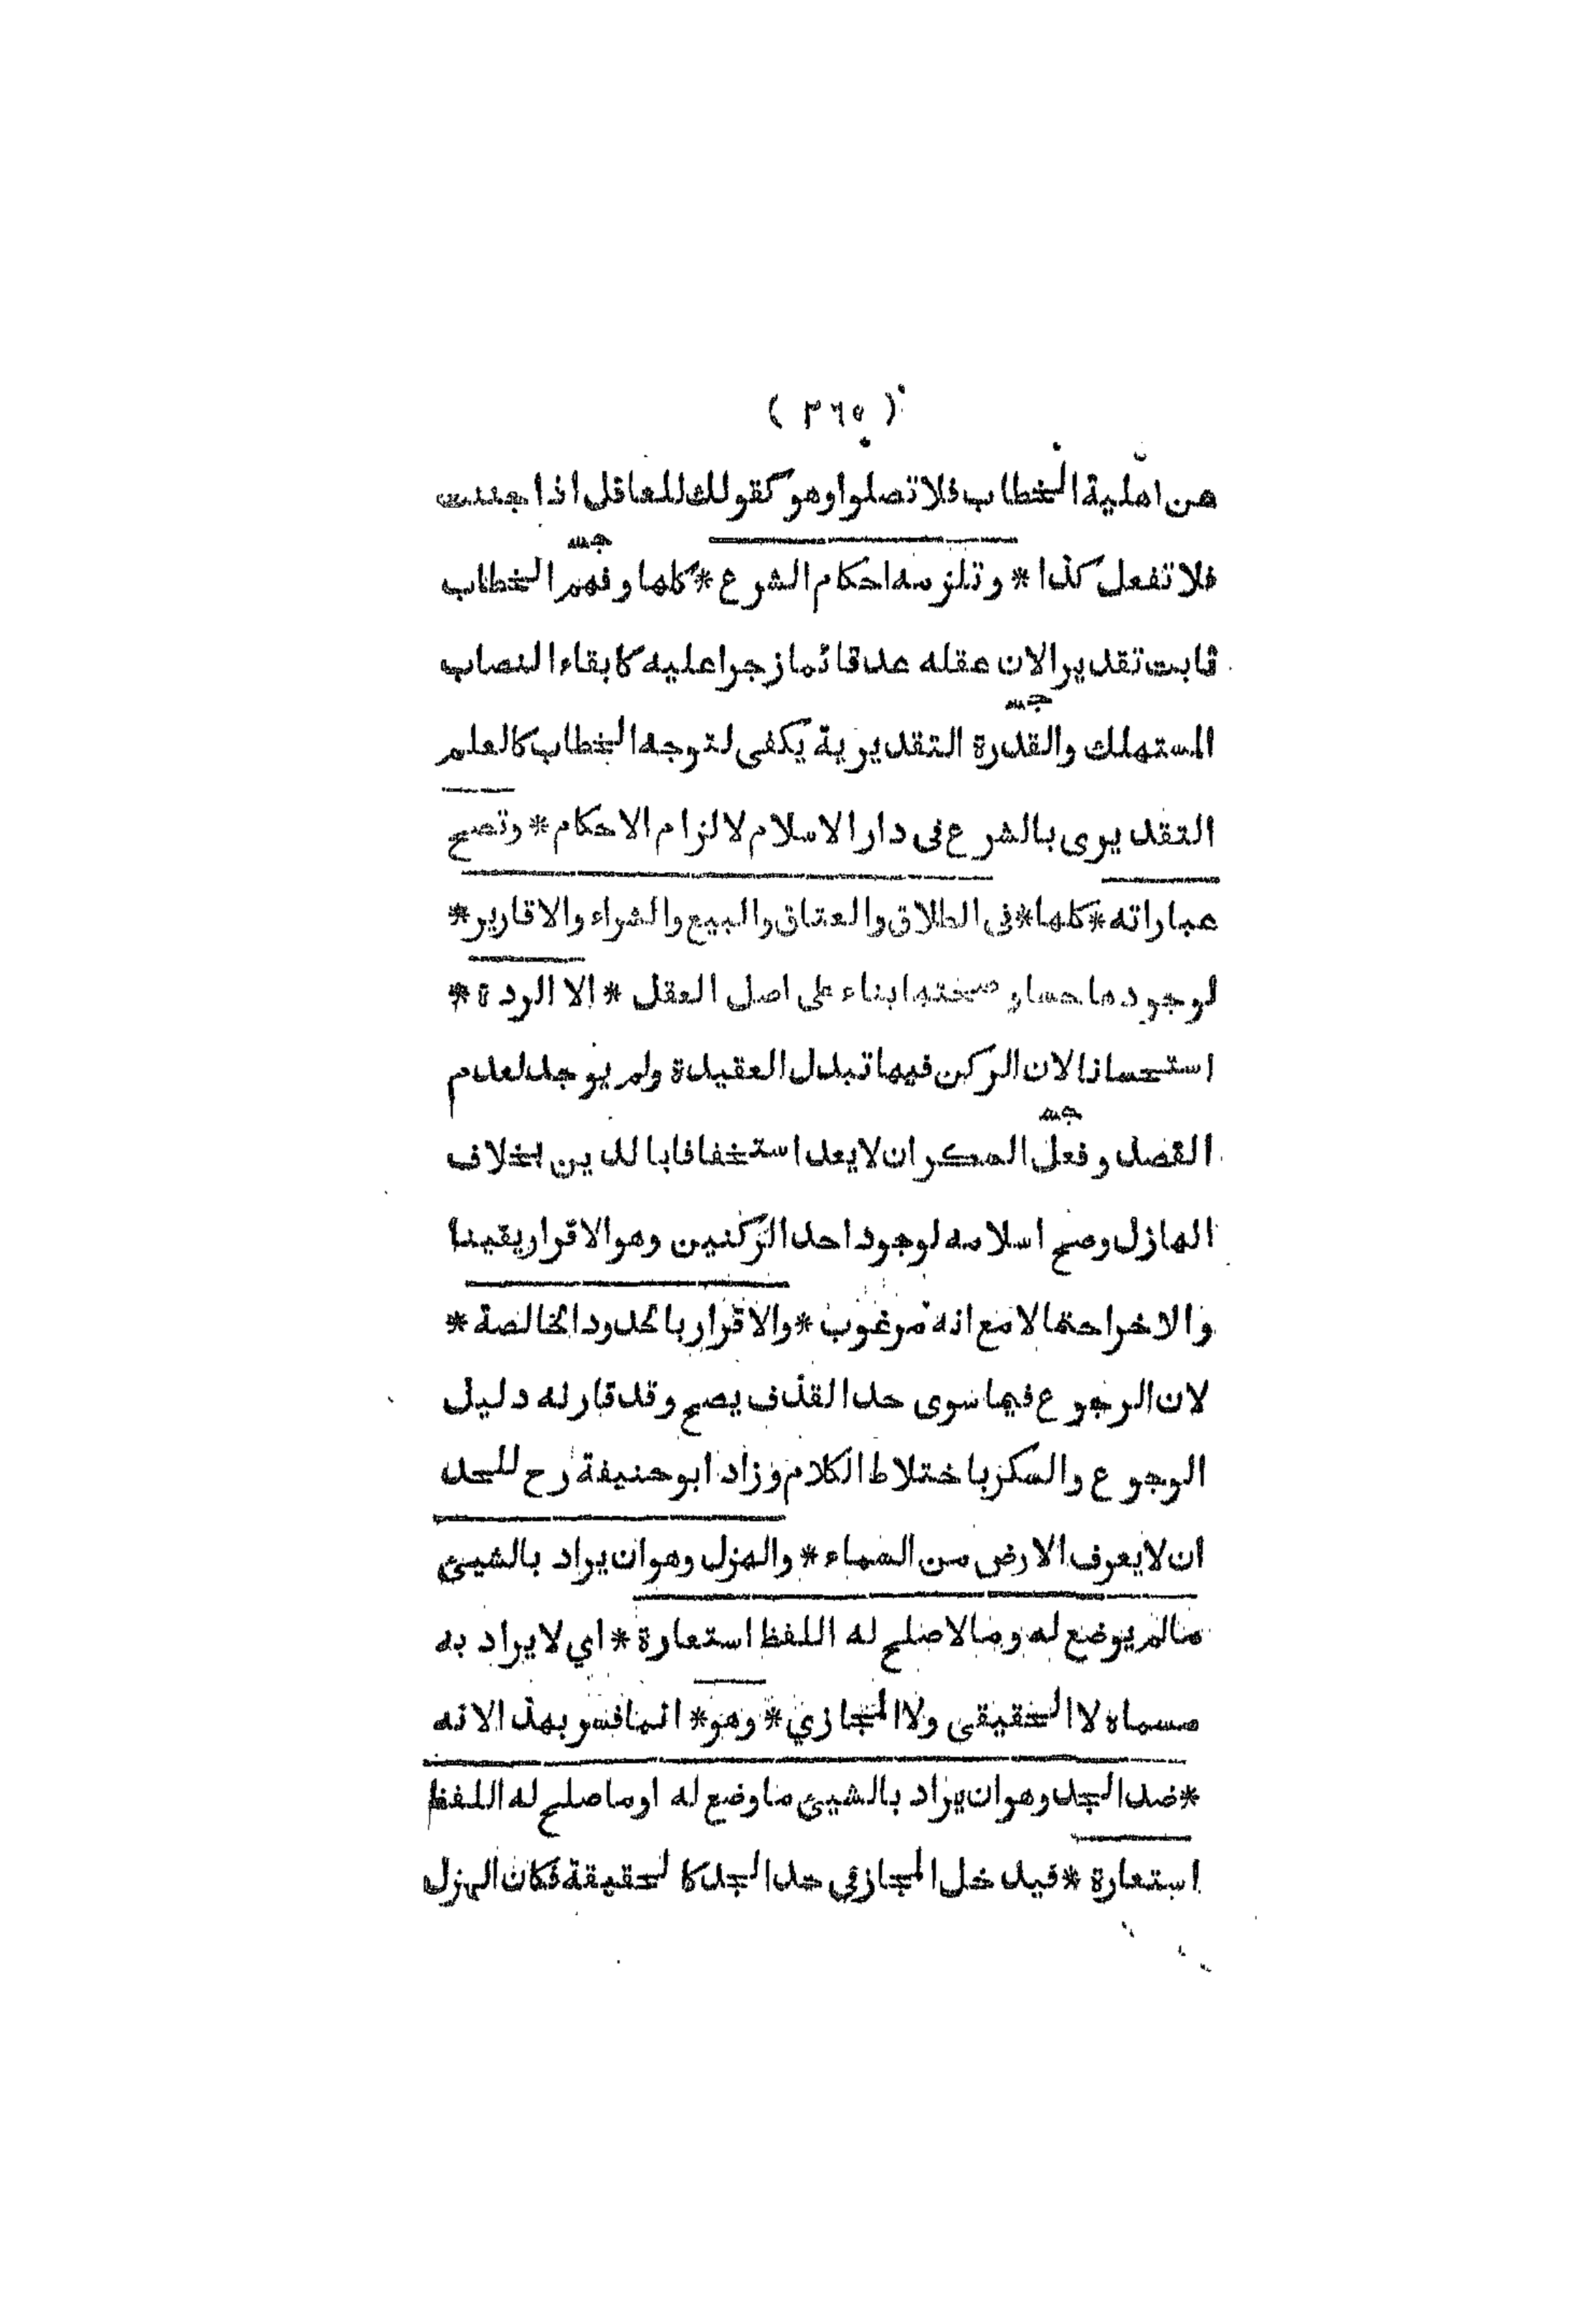 ( ٣٦٥ )
عن اهلية الخطاب فلا تصلوا وهو كقولك للعاقل اذا جننت
فلا تفعل كذا * وتلزمه احكام الشرع * كلها وفهم الخطاب
ثابت تقديرا لان عقله عد قائما زجرا عليه كابقاء النصاب
المستهلك والقدرة التقديرية يكفى لتوجه الخطاب كالعلم
التقديرى بالشرع فى دار الاسلام لالزام الاحكام * وتصح
عباراته * كلها * فى الطلاق والعتاق والبيع والشراء والاقارير *
لوجودها حسا وصحتها بناء على اصل العقل * الا الردة *
استحسانا لان الركن فيها تبدل العقيدة ولم يوجد لعدم
القصد وفعل السكران لا يعد استخفافا بالدين بخلاف
الهازل وصح اسلامه لوجود احد الركنين وهو الاقرار يقينا
والاخر احتمالا مع انه مرغوب * والاقرار بالحدود الخالصة *
لان الرجوع فيما سوى حد القذف يصح وقد قارنه دليل
الرجوع والسكر باختلاط الكلام وزاد ابو حنيفة رح للحد
ان لا يعرف الارض من السماء * والهزل وهو ان يراد بالشيئ
مالم يوضع له وما لا صلح له اللفظ استعارة * اي لا يراد به
مسماه لا الحقيقى ولا المجازي * وهو * انما فسر بهذا لانه
* ضد الجد وهو ان يراد بالشيئ ما وضع له او ما صلح له اللفظ
استعارة * فيدخل المجاز فى حد الجد كالحقيقة فكان الهزل